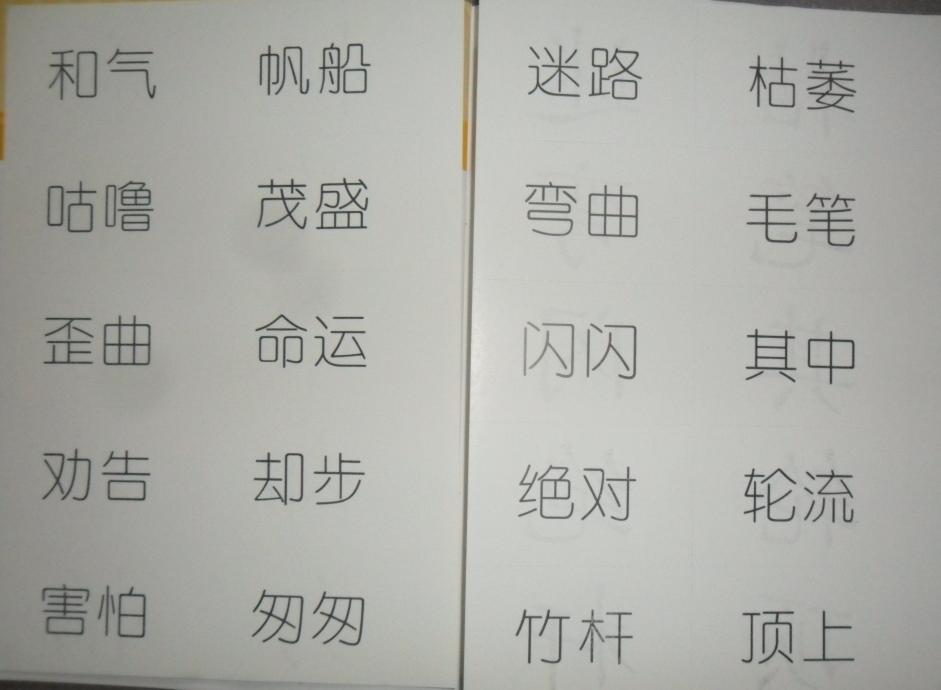 和气 帆船
咕噜 茂盛
歪曲 命运
劝告 却步
害怕 匆匆
迷路 枯萎
弯曲 毛笔
闪闪 其中
绝对 轮流
竹杆 顶上